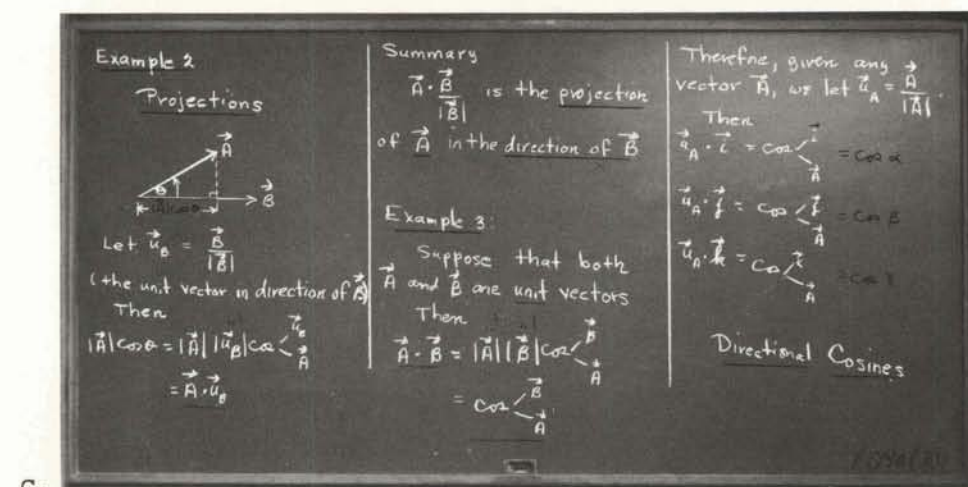 Example 2
Projections
A⃗
θ
B⃗
|A⃗|cosθ
Let u⃗_B = B⃗/|B⃗|
(the unit vector in direction of B⃗)
Then
|A⃗|cosθ = |A⃗| |u⃗_B| cos∠ u⃗_B A⃗
= A⃗·u⃗_B
Summary
A⃗·B⃗/|B⃗| is the projection
of A⃗ in the direction of B⃗
Example 3:
Suppose that both
A⃗ and B⃗ are unit vectors
Then
A⃗·B⃗ = |A⃗| |B⃗| cos∠ B⃗ A⃗
= cos∠ B⃗ A⃗
Therefore, given any
vector A⃗, we let u⃗_A = A⃗/|A⃗|.
Then
u⃗_A·i⃗ = cos∠ i⃗ A⃗ = cos α
u⃗_A·j⃗ = cos∠ j⃗ A⃗ = cos β
u⃗_A·k⃗ = cos∠ k⃗ A⃗ = cos γ
Directional Cosines